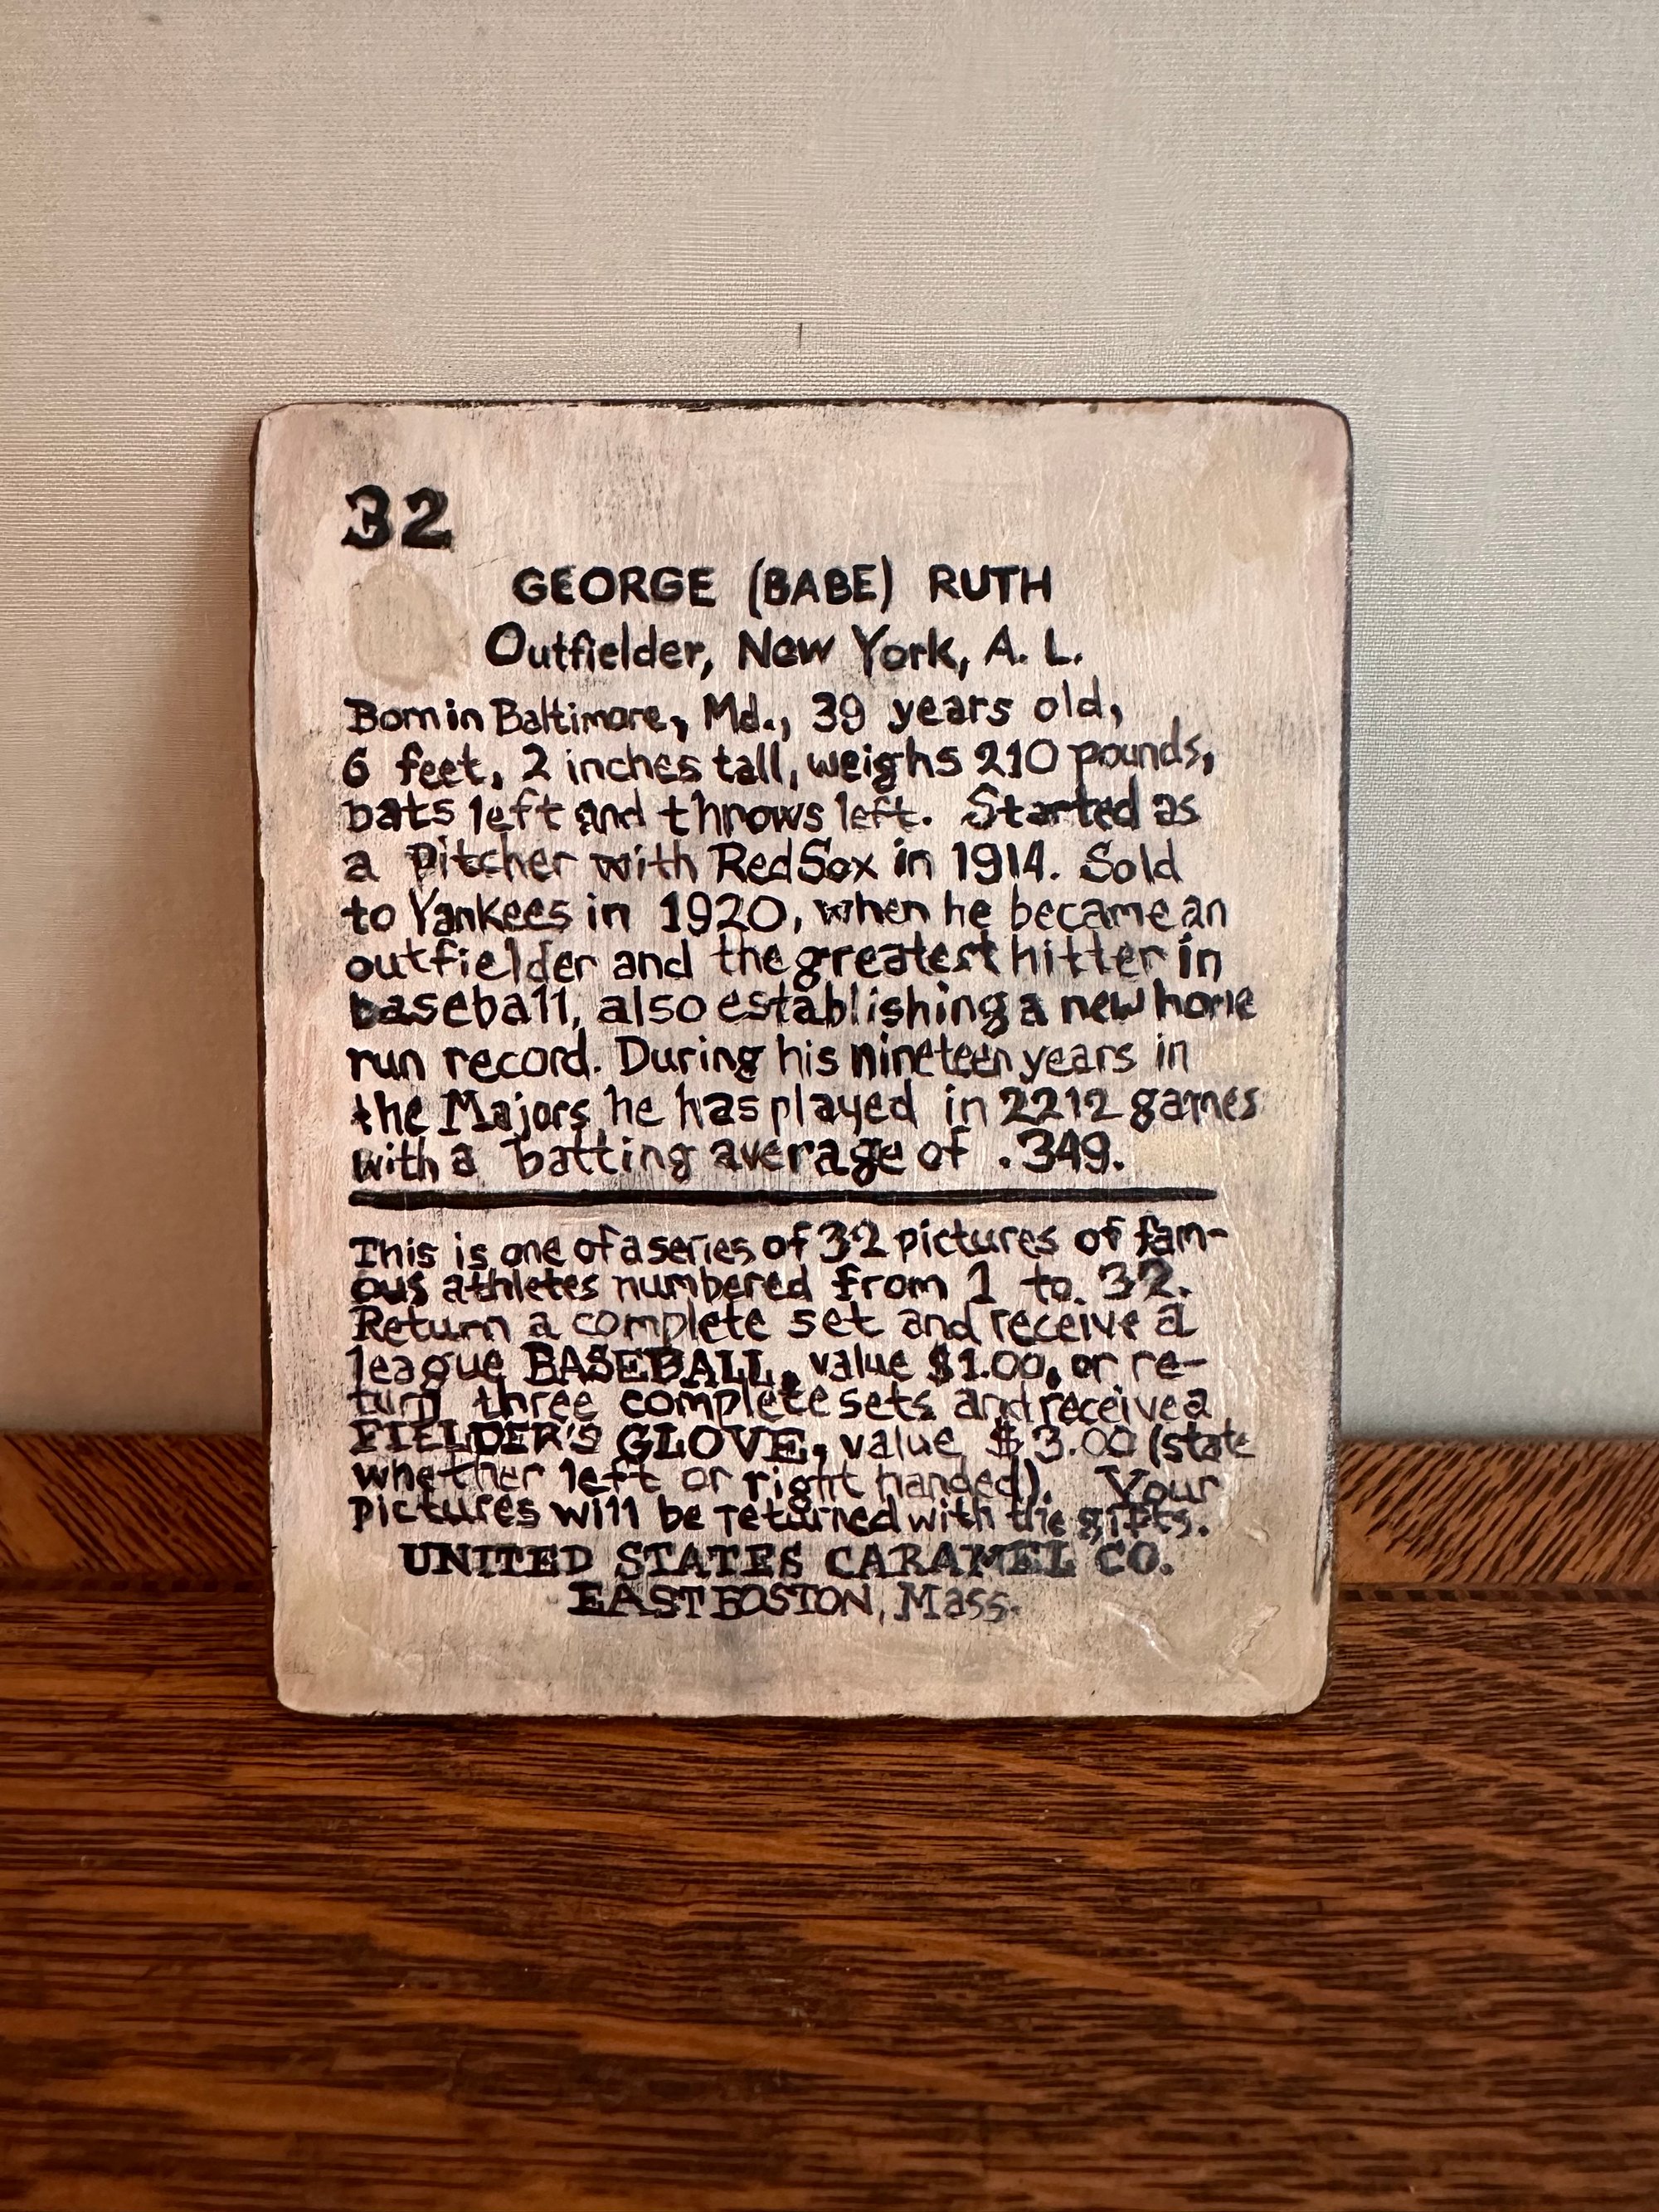 32
GEORGE (BABE) RUTH
Outfielder, New York, A. L.
Born in Baltimore, Md., 39 years old,
6 feet, 2 inches tall, weighs 210 pounds,
bats left and throws left. Started as
a Pitcher with Red Sox in 1914. Sold
to Yankees in 1920, when he became an
outfielder and the greatest hitter in
baseball, also establishing a new home
run record. During his nineteen years in
the Majors he has played in 2212 games
with a batting average of .349.
This is one of a series of 32 pictures of fam-
ous athletes numbered from 1 to 32.
Return a complete set and receive a
league BASEBALL, value $1.00, or re-
turn three complete sets and receive a
FIELDER'S GLOVE, value $3.00 (state
whether left or right handed). Your
pictures will be returned with the gifts.
UNITED STATES CARAMEL CO.
EAST BOSTON, Mass.